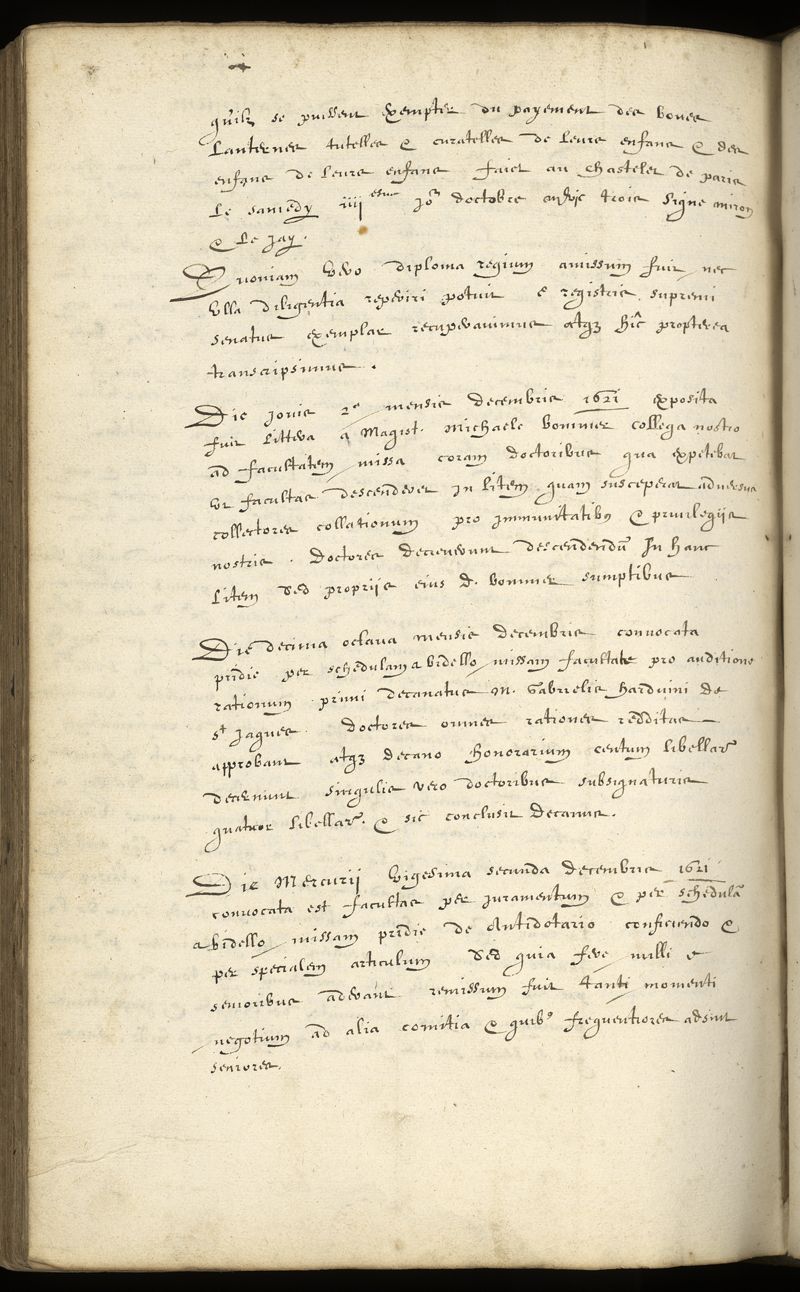 qu'ilz se puissent exempter du payement des boues
Lanternes tutelles & curatelles de leurs enfans & des
enfans de leurs enfans faict au Chastelet de paris
Le samedy iiii jo^r doctobre trois Signe miron
& Le jay.
Quoniam vero diploma regium amissum fuit nec
ulla diligentia reperiri potuit e registris supremi
senatus exemplar recuperavimus atq3 hîc propterea
transcripsimus.
Die jovis 2ª mensis decembris 1621 exposita
fuit littera a Magist. Michaele bommer collega nostro
ad facultatem missa coram doctoribus qua expetebat
ut facultas descenderet in litem quam susceperat adversus
collectores collationum pro immunitatibus & privilegijs
nostris. doctores decreverunt descendendū In hanc
litem sed proprijs eius d. bommer sumptibus
Die decima octava mensis decembris convocata
pridie per schedulam a bidello missam facultate pro auditione
rationum primi decanatus M. Gabrielis harduini de
s^t jaques. doctores omnes rationes redditas
approbant atq3 decano honorarium centum libellar^.
decernunt singulis vero doctoribus subsignaturis
quatuor libellar^. & sic conclusit decanus.
Die Mercurij vigesima secunda decembris 1621
convocata est facultas per juramentum & per schedulā
a bidello missam pridie de Antidotario conficiendo &
per specialem articulum sed quia fere nulli e
senioribus aderant remissum fuit tanti momenti
negotium ad alia comitia & quib^9 frequentiores adsint
seniores.